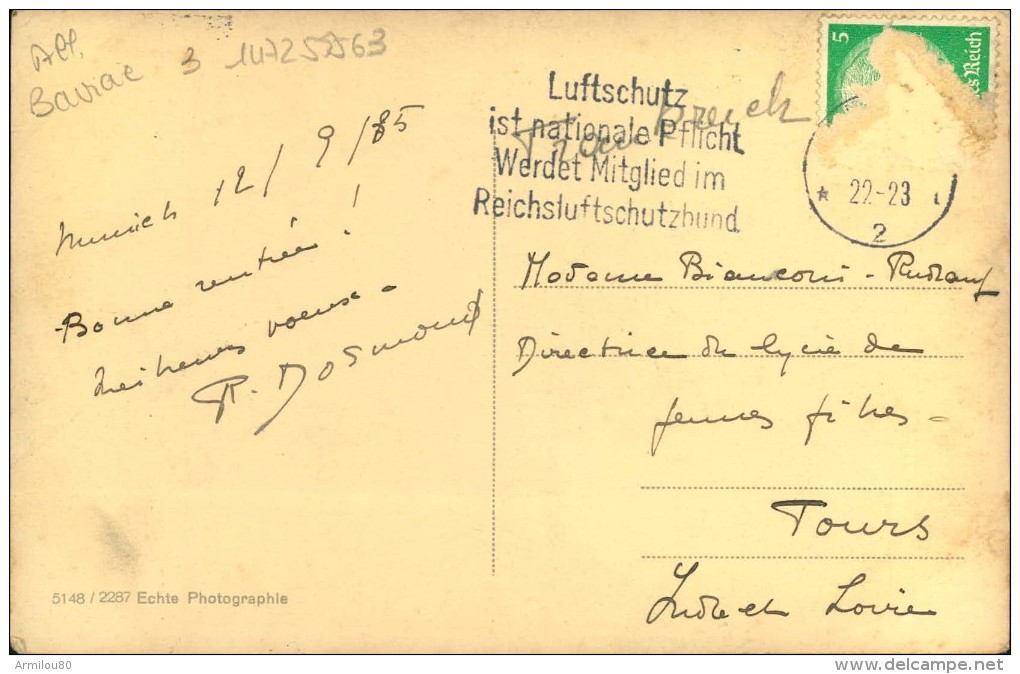 All.
Bavière 3 14725263
Munich 12/9/35
Bonne rentrée !
meilleurs voeux -
R. Dosmond
5148 / 2287 Echte Photographie
5
Reich
Luftschutz
ist nationale Pflicht
Werdet Mitglied im
Reichsluftschutzbund
22-23
2
Frankreich
Madame Bianconi - Rudrauf
Directrice du lycée de
jeunes filles -
Tours
Indre et Loire
Armilou80
www.delcampe.net